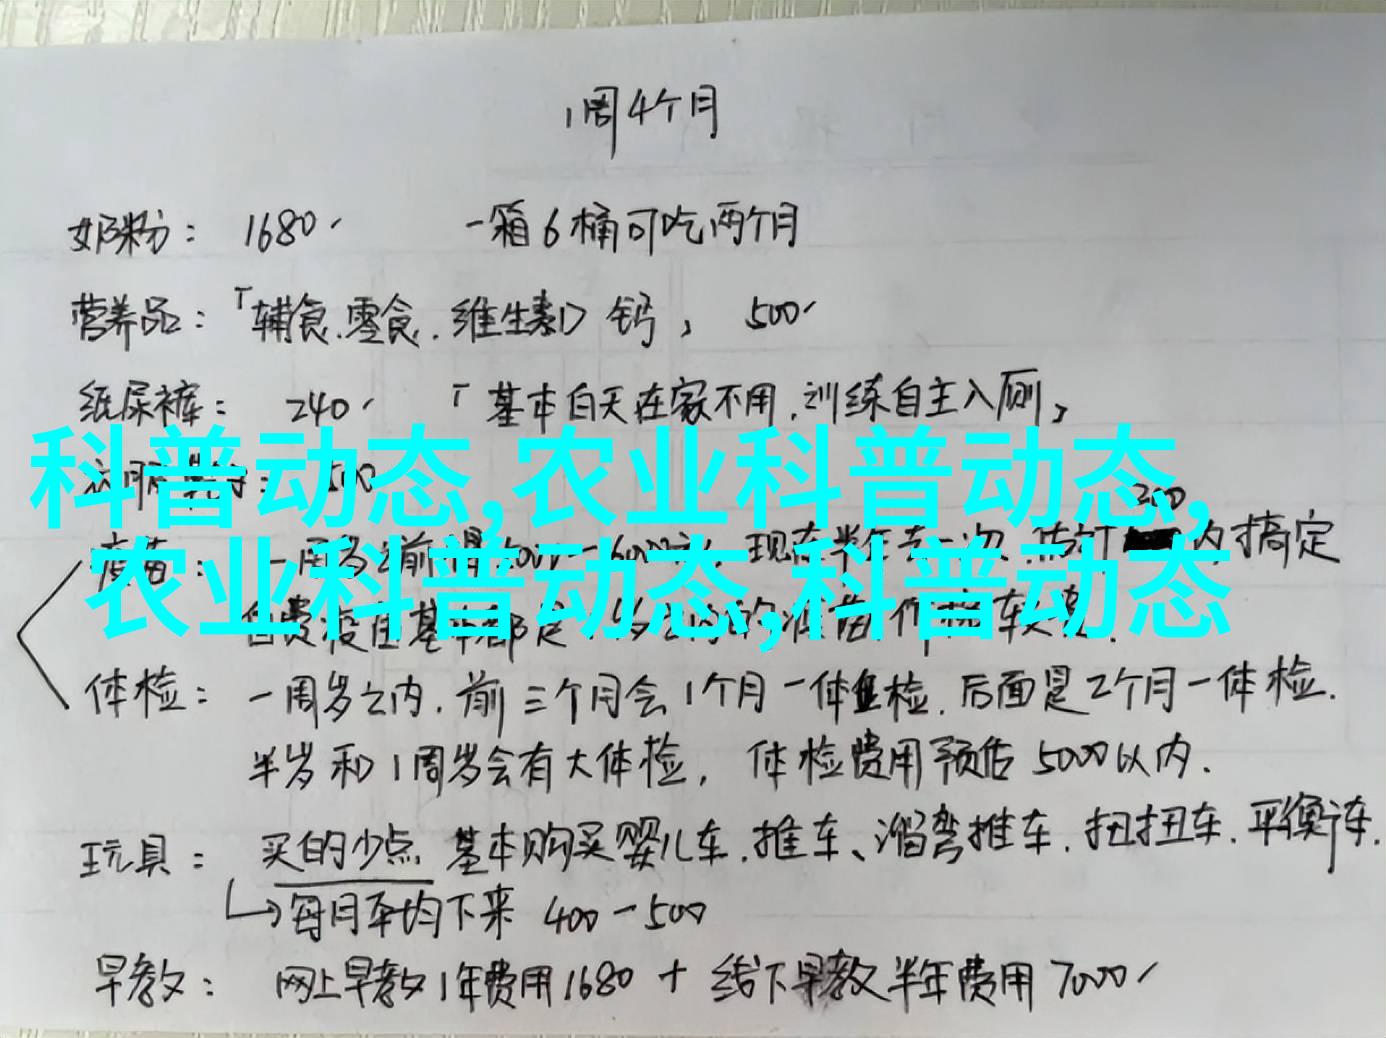 1周4个月
奶粉： 1680 一箱6桶可吃两个月
营养品：「辅食.零食.维生素D 钙」 500
纸尿裤： 240 「基本白天在家不用.训练自主入厕」
科普动态,农业科普动态,
500
200
疫苗： 一周岁之前 现在半年 一次 内搞定
农业科普动态,科普动态
自费疫苗基本都
体检： 一周岁之内.前三个月会1个月一体检.后面是2个月一体检.
半岁和1周岁会有大体检, 体检费用预估5000以内.
玩具： 买的少点 基本购买婴儿车.推车、溜弯推车.扭扭车.平衡车.
→每月平均下来 400-500
早教： 网上早教1年费用1680 + 线下早教半年费用7000